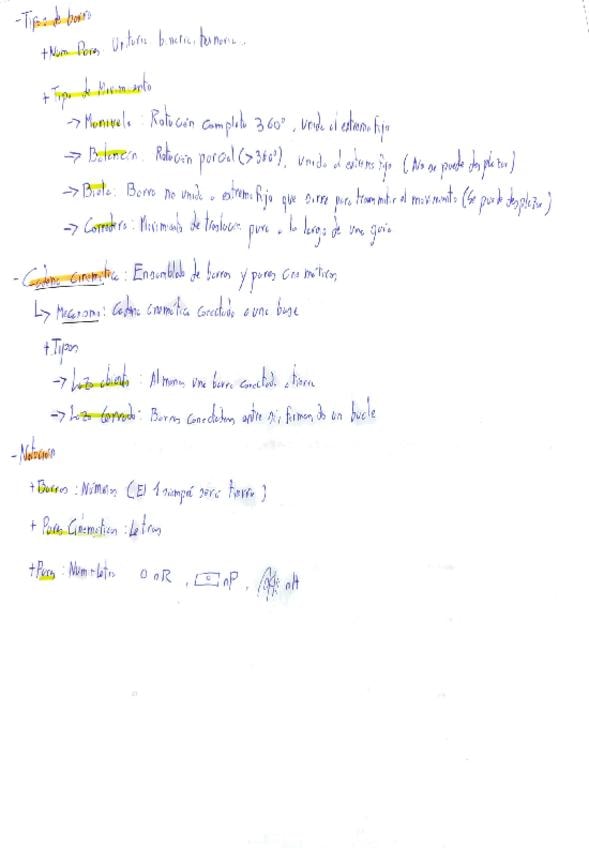 - Tipos de barra
+ Num Pares Unitaria, binaria, ternaria...
+ Tipo de Movimiento
-> Manivela: Rotación completa 360°, unida al extremo fijo
-> Balancín: Rotación parcial (>360°), unida al extremo fijo (No se puede desplazar)
-> Biela: Barra no unida a extremo fijo que sirve para transmitir el movimiento (Se puede desplazar)
-> Corredera: Movimiento de traslación pura a lo largo de una guía
- Cadena cinemática: Ensamblado de barras y pares cinemáticos
↳ Mecanismo: Cadena cinemática conectada a una base
+ Tipos
-> Lazo abierto: Al menos una barra conectada a tierra
-> Lazo Cerrado: Barras conectadas entre sí, formando un bucle
- Notación
+ Barras: Números (El 1 siempre será tierra)
+ Pares Cinemáticos: Letras
+ Pares: Num+Letra O nR, nP, nH